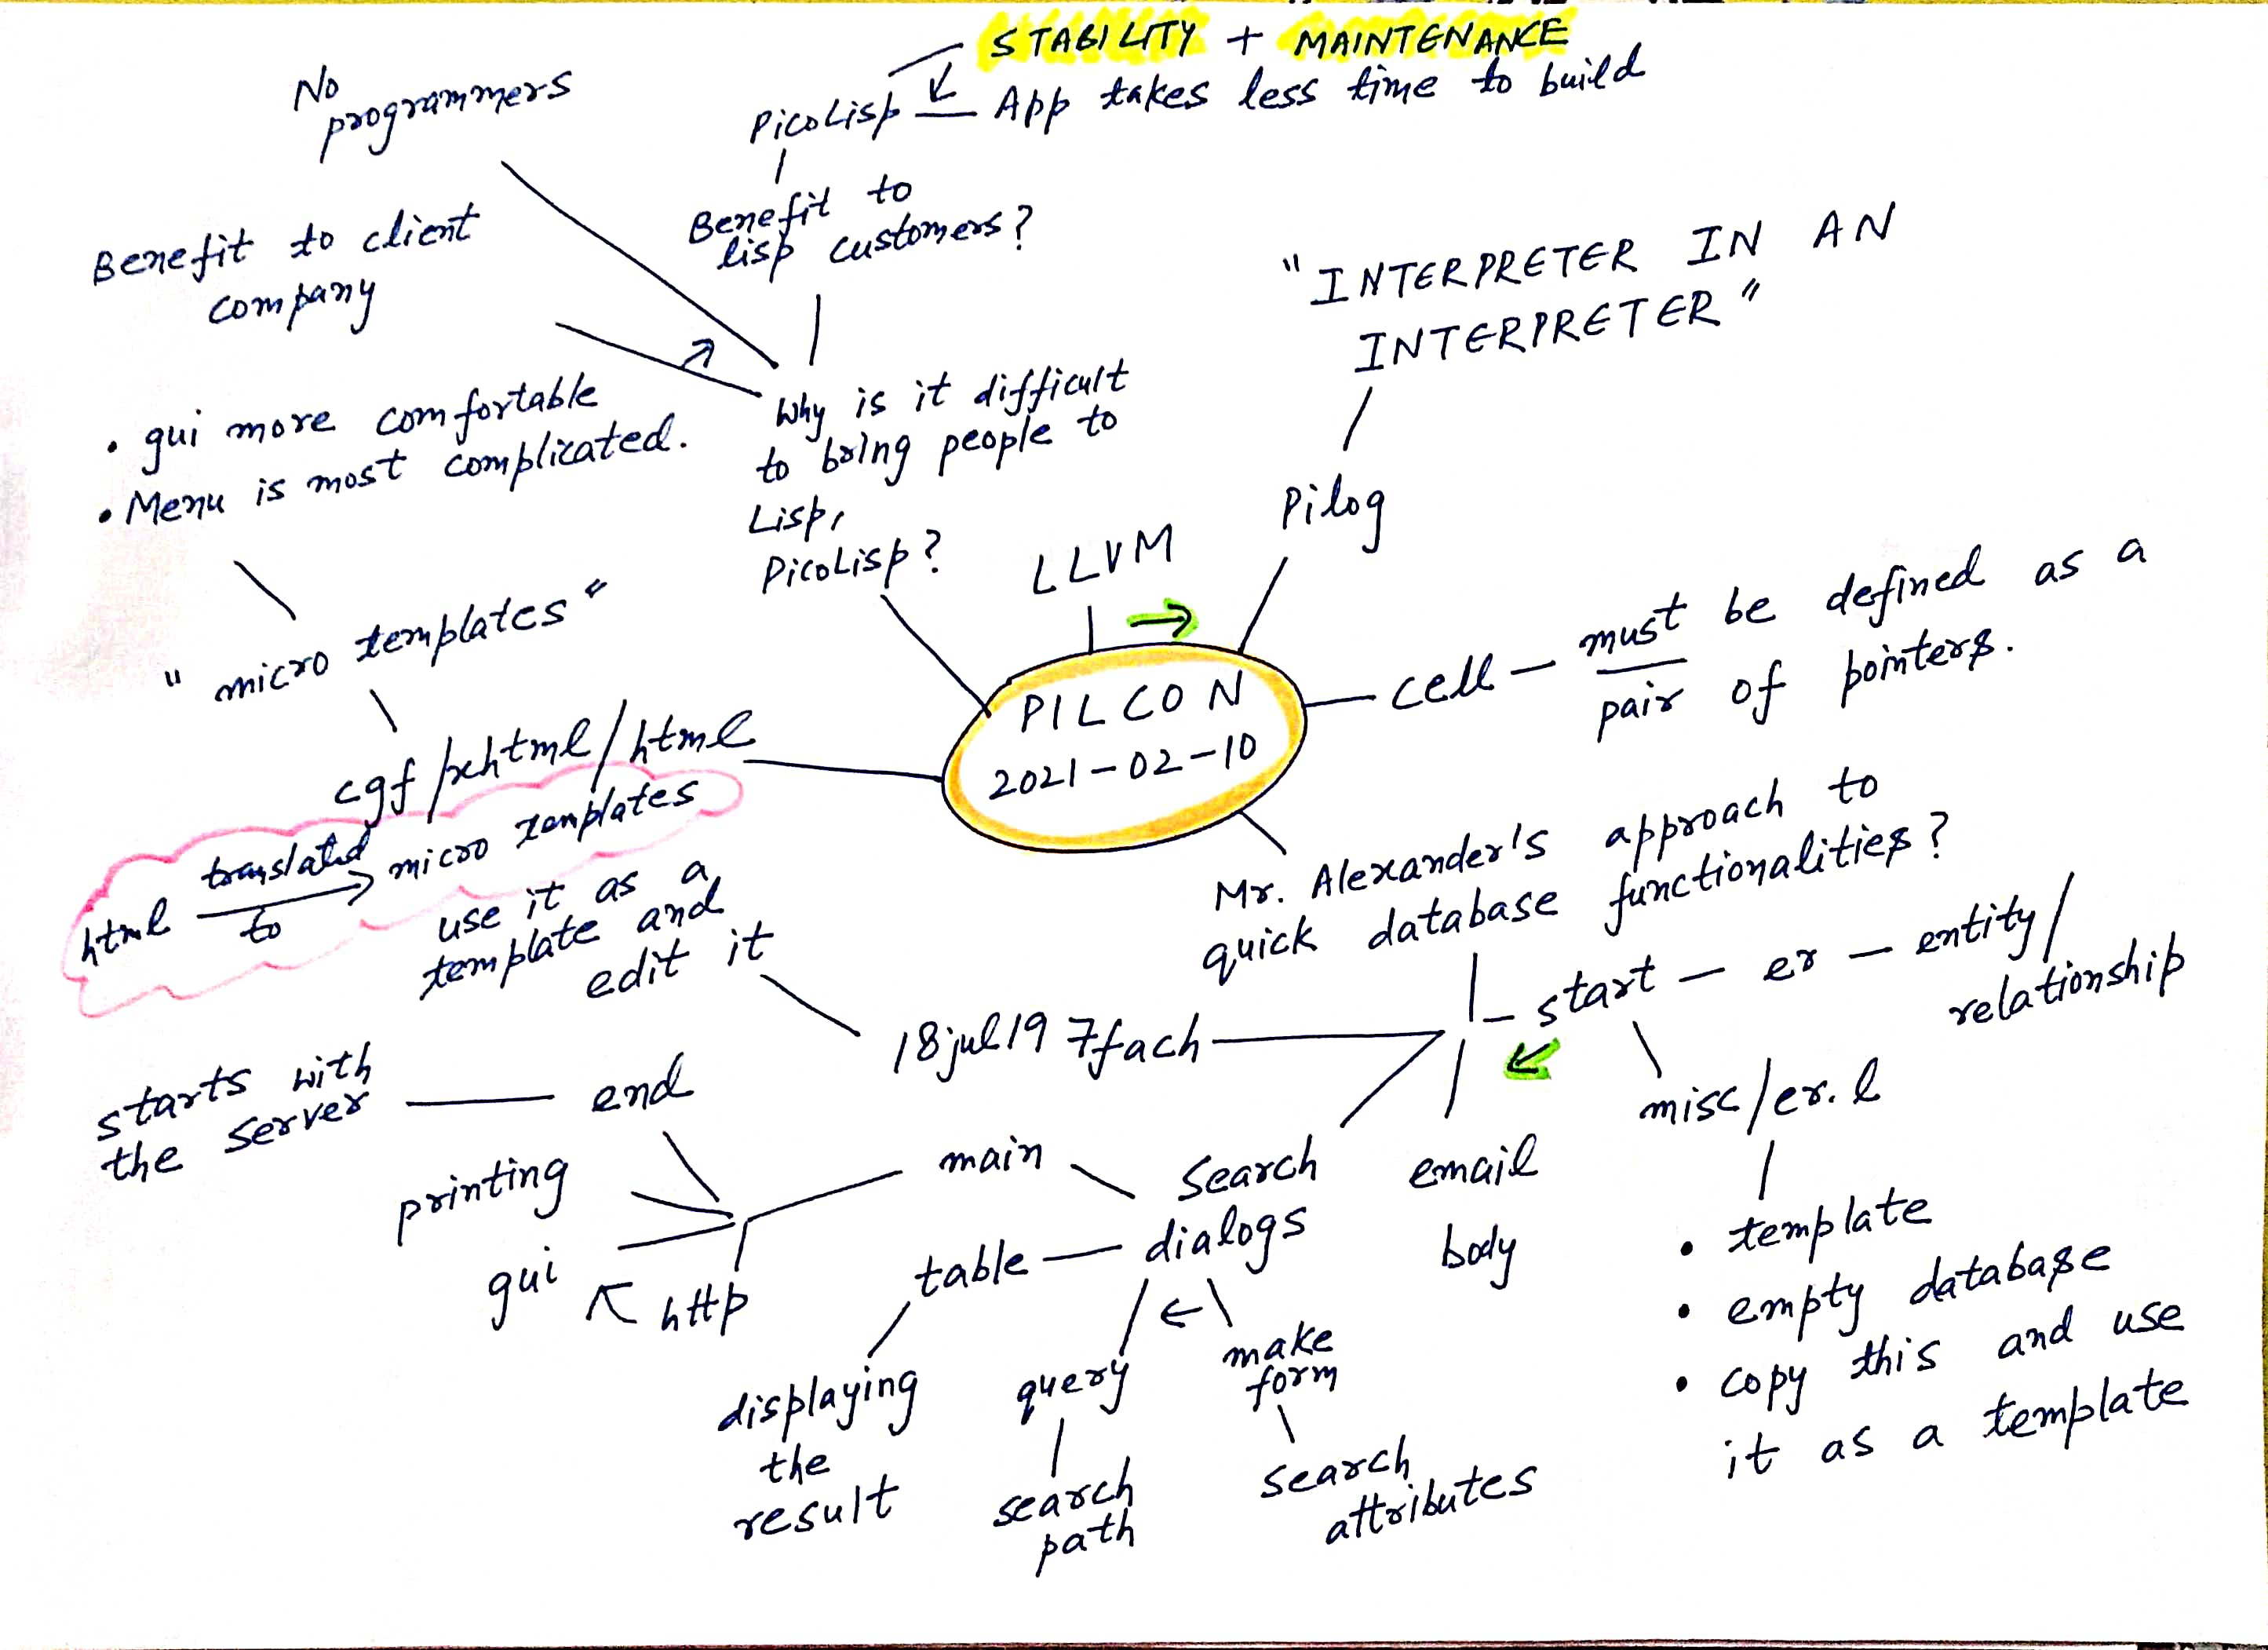 STABILITY + MAINTENANCE
PicoLisp — App takes less time to build
Benefit to
lisp customers?
No
programmers
Benefit to client
company
Why is it difficult
to bring people to
Lisp,
PicoLisp?
LLVM
Pilog
"INTERPRETER IN AN
INTERPRETER"
PILCON
2021-02-10
cell — must be defined as a
pair of pointers.
Mr. Alexander's approach to
quick database functionalities?
start — er — entity/
relationship
misc/er.l
• template
• empty database
• copy this and use
it as a template
email
body
search
dialogs
make
form
search
attributes
query
search
path
table
displaying
the
result
main
http
gui
printing
end
starts with
the server
18jul19 7fach
use it as a
template and
edit it
cgf/xhtml/html
html translated to → micro templates
"micro templates"
• gui more comfortable
• Menu is most complicated.